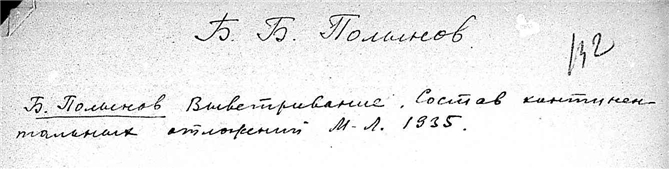 Б. Б. Полынов.
132
Б. Полынов Выветривание. Состав континен-
тальных отложений М-Л. 1935.